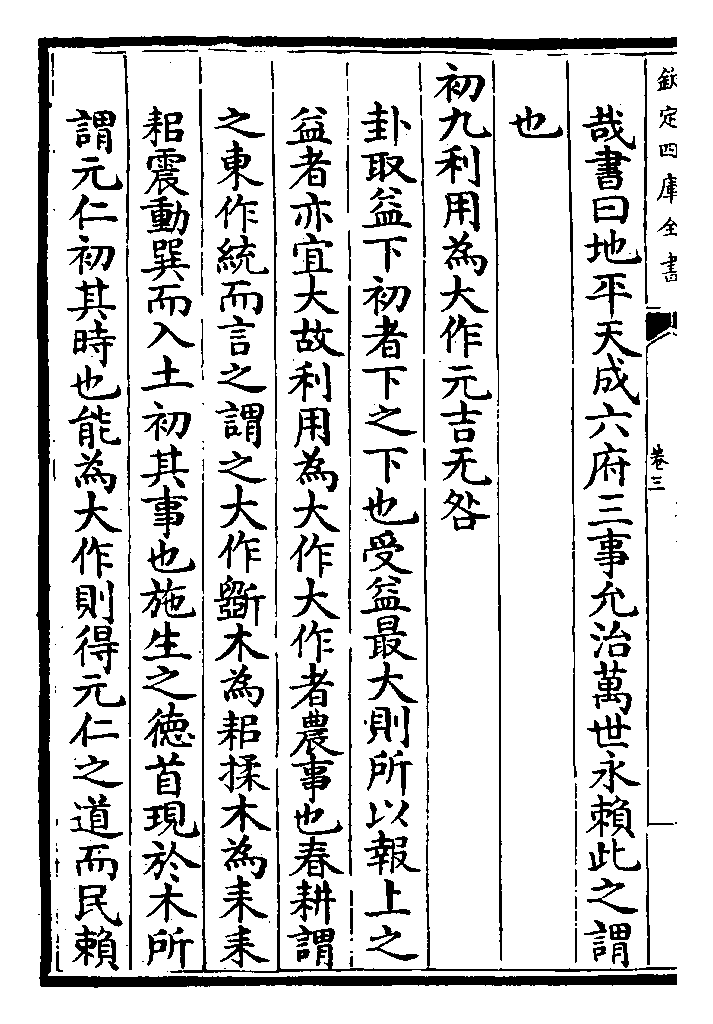 欽定四庫全書
卷三
哉書曰地平天成六府三事允治萬世永賴此之謂
也
初九利用為大作元吉无咎
卦取益下初者下之下也受益最大則所以報上之
益者亦宜大故利用為大作大作者農事也春耕謂
之東作統而言之謂之大作斵木為耜揉木為耒耒
耜震動巽而入土初其事也施生之德首現於木所
謂元仁初其時也能為大作則得元仁之道而民賴